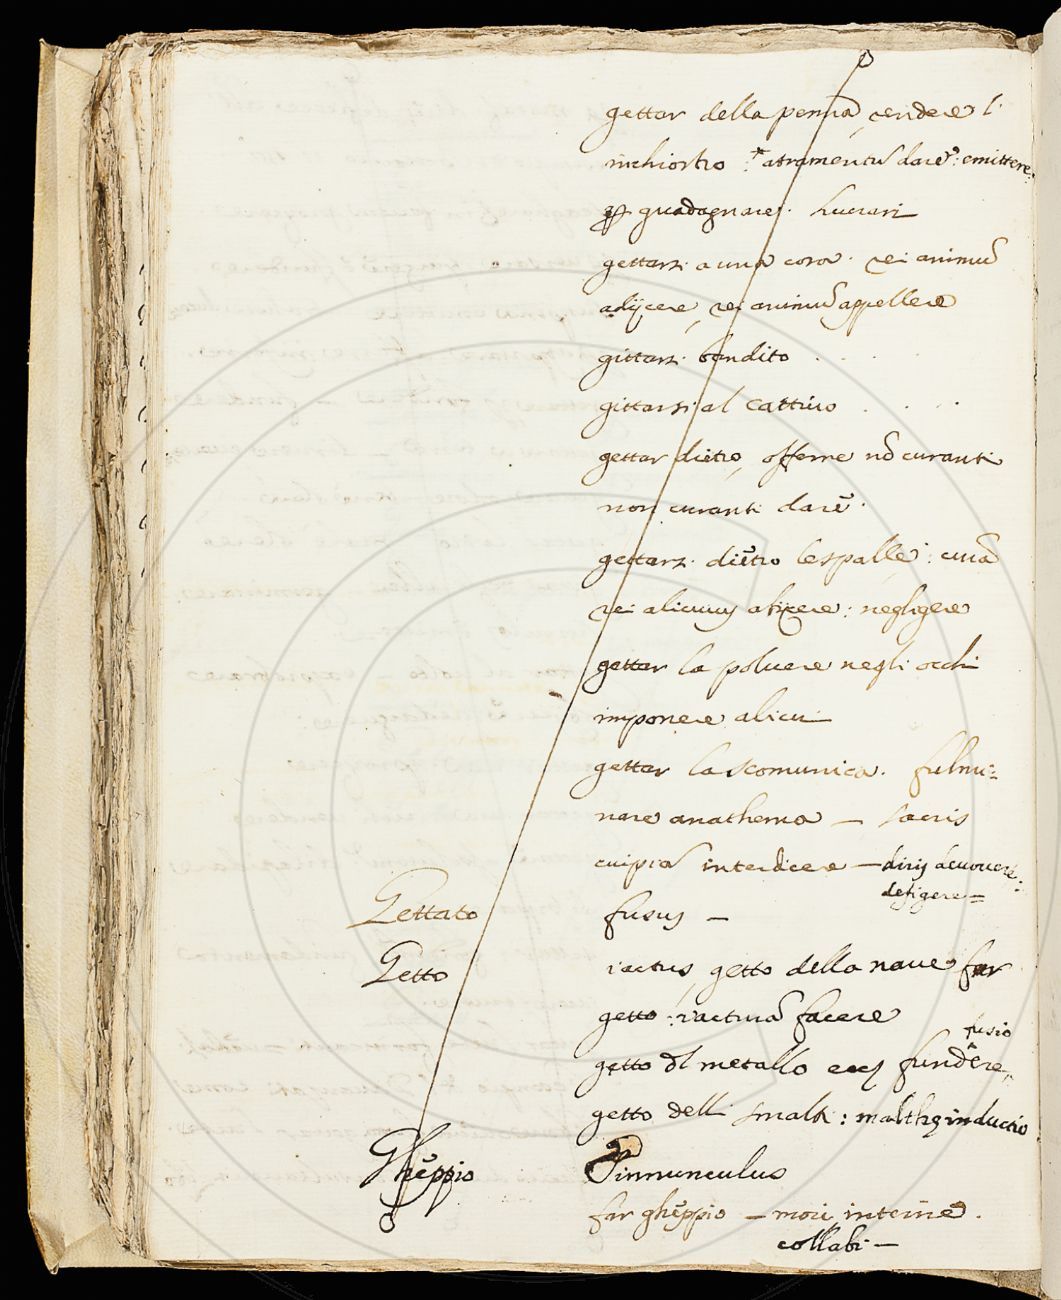 gettar della penna, rendere l'
inchiostro : atramentũ dare : emittere
guadagnare. Lucrari
gettarsi a una cosa. rei animũ
adijcere, rei animũ appellere
gittarsi bandito . . . .
gittarsi al cattivo . . . .
gettar dietro, offerre nõ curanti
non curanti dare.
gettarsi dietro le spalle :
rei alicuius abijcere : negligere
gettar la polvere negli occhi
imponere alicui
gettar la scomunica. fulmi=
nare anathema — sacris
cuipiã interdicere — diris devovere :
defigere=
Gettato fusus —
Getto iactus, getto della nave far
getto : iacturã facere
fusio
getto dl metallo fundere
getto delli smalti : malthę inductio
Ghéppio Tinnunculus
far ghéppio — mori
collabi —